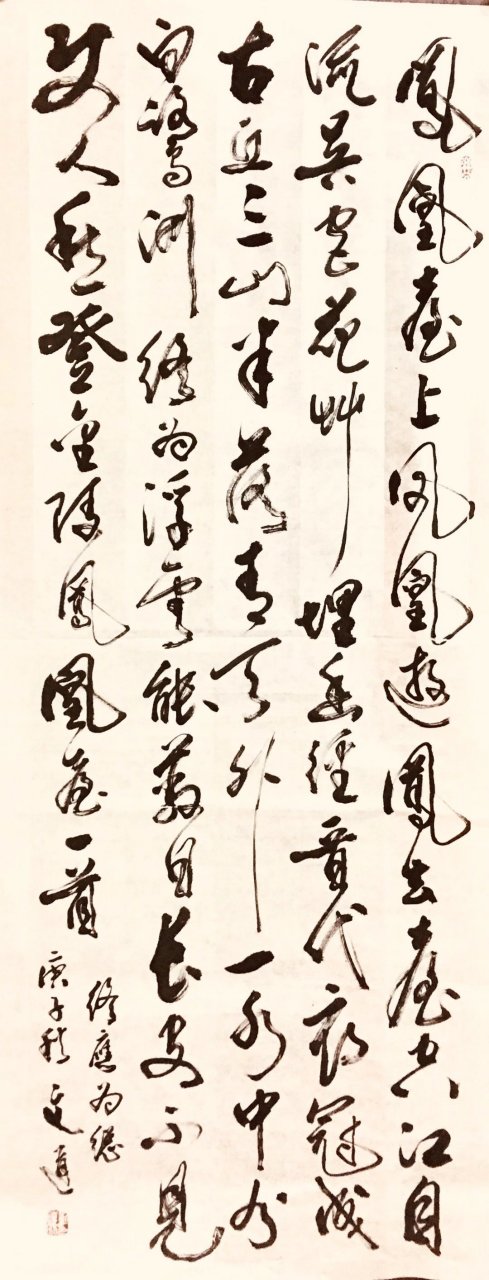 鳳凰臺上凤凰遊鳳去臺空江自
流吳宮花艸埋幽徑晉代衣冠成
古丘三山半落青天外一水中分
白鷺洲為浮雲能蔽日長安不見
使人愁登金陵鳳凰臺一首
應為總
庚子秋